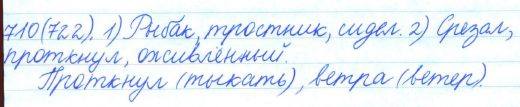 710(722). 1) Рыбак, тростник, сидел. 2) Срезал,
проткнул, оживлённый.
Проткнул (тыкать), ветра (ветер).